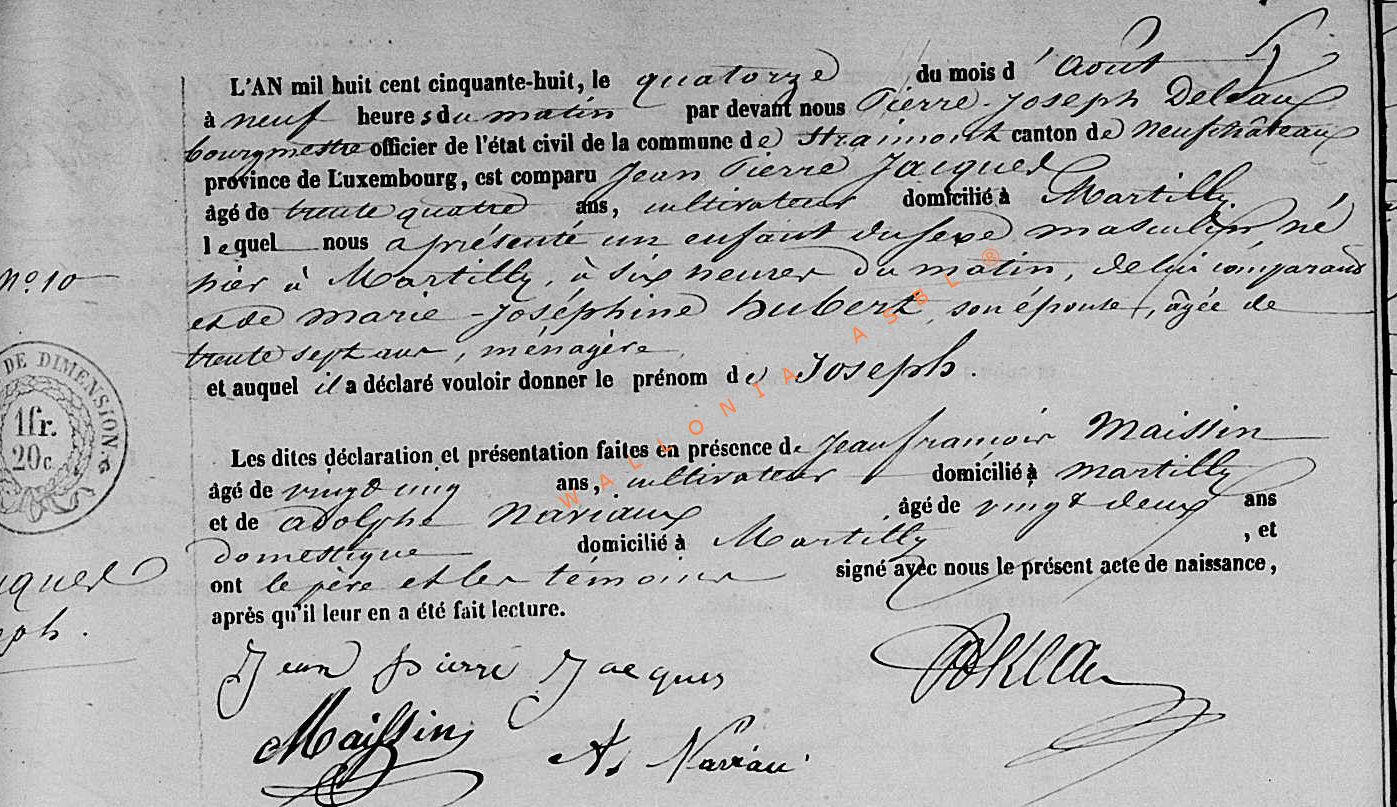 L'AN mil huit cent cinquante-huit, le quatorze du mois d'Août
à neuf heures du matin par devant nous Pierre-Joseph
bourgmestre officier de l'état civil de la commune de Straimont canton de Neufchâteau
province de Luxembourg, est comparu Jean Pierre Jacques
âgé de trente quatre ans, cultivateur domicilié à Martilly
lequel nous a présenté un enfant du sexe masculin né
hier à Martilly, à six heures du matin, de lui comparant
et de marie-Joséphine hubert, son épouse, âgée de
trente sept ans, ménagère,
et auquel il a déclaré vouloir donner le prénom de Joseph.
Les dites déclaration et présentation faites en présence de Jean françois Maissin
âgé de vingt cinq ans, cultivateur domicilié à Martilly
et de adolphe Nariaux âgé de vingt deux ans
domestique domicilié à Martilly, et
ont le père et les témoins signé avec nous le présent acte de naissance,
après qu'il leur en a été fait lecture.
Jean pierre Jacques
Maissin
Ad Nariau
No. 10
DE DIMENSION
1fr.
20c.
acques
eph.
WALLONIA ASBL ®